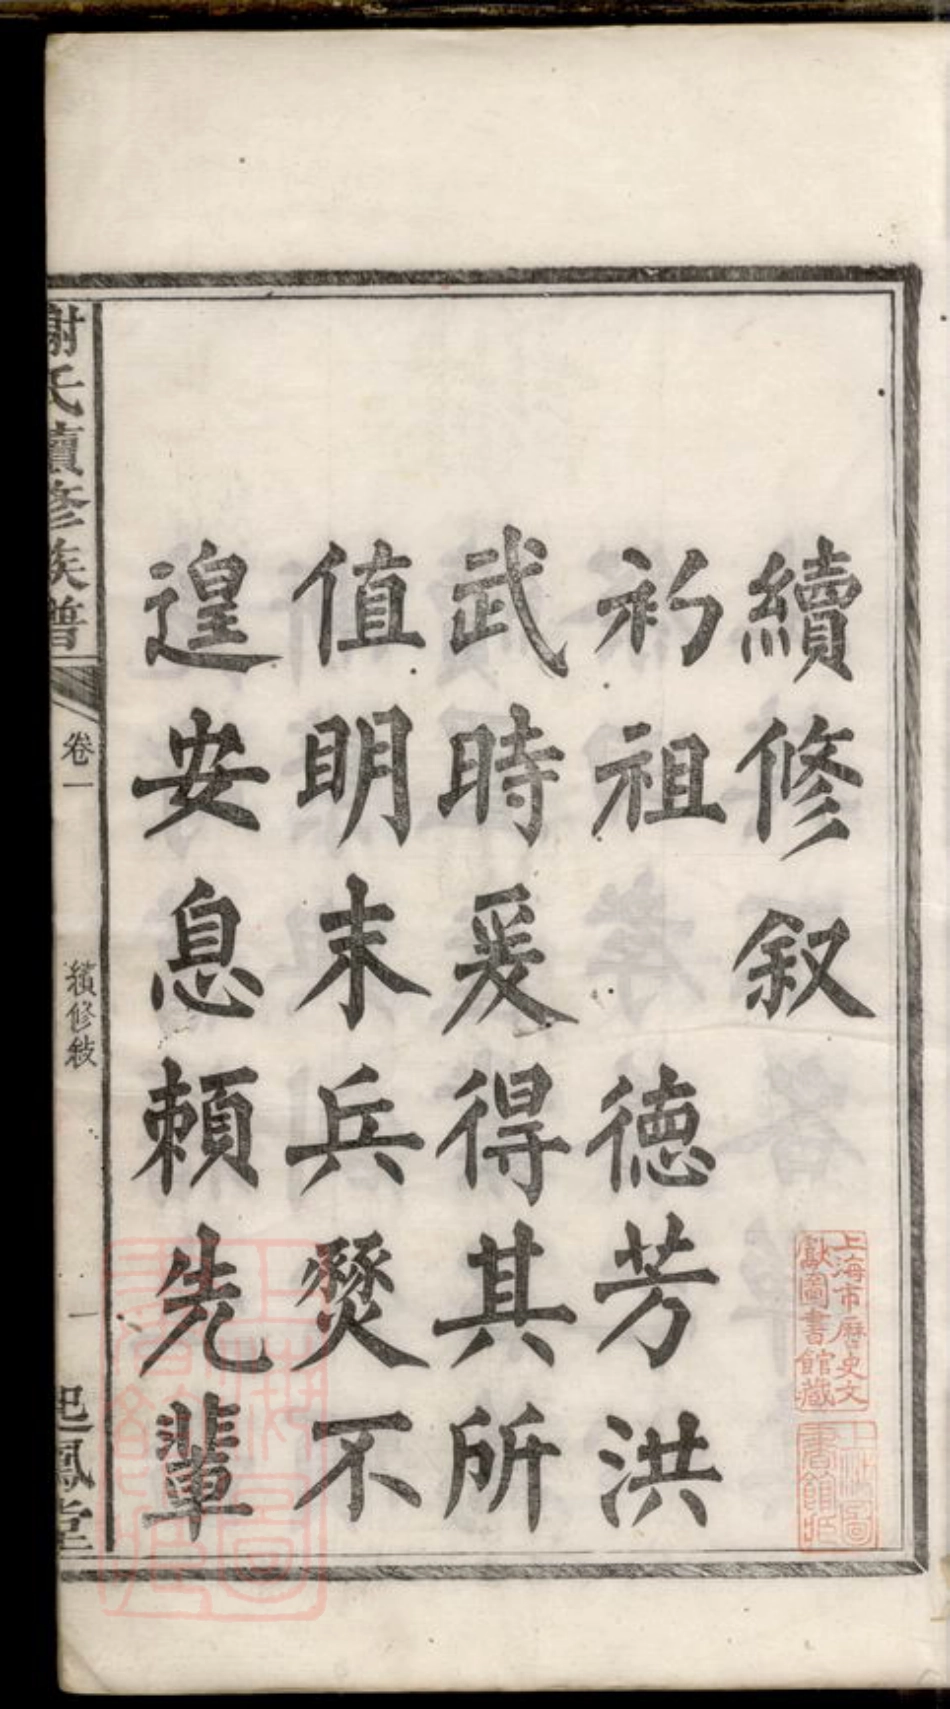 續修叙
礽祖 德芳洪
武時爰得其所
值明末兵燹不
遑安息頼先輩
謝氏續修族譜
卷一
續修敍
一
起鳳堂
上海市歷史文
獻圖書館藏
上海圖
書館藏
上海圖
書館藏